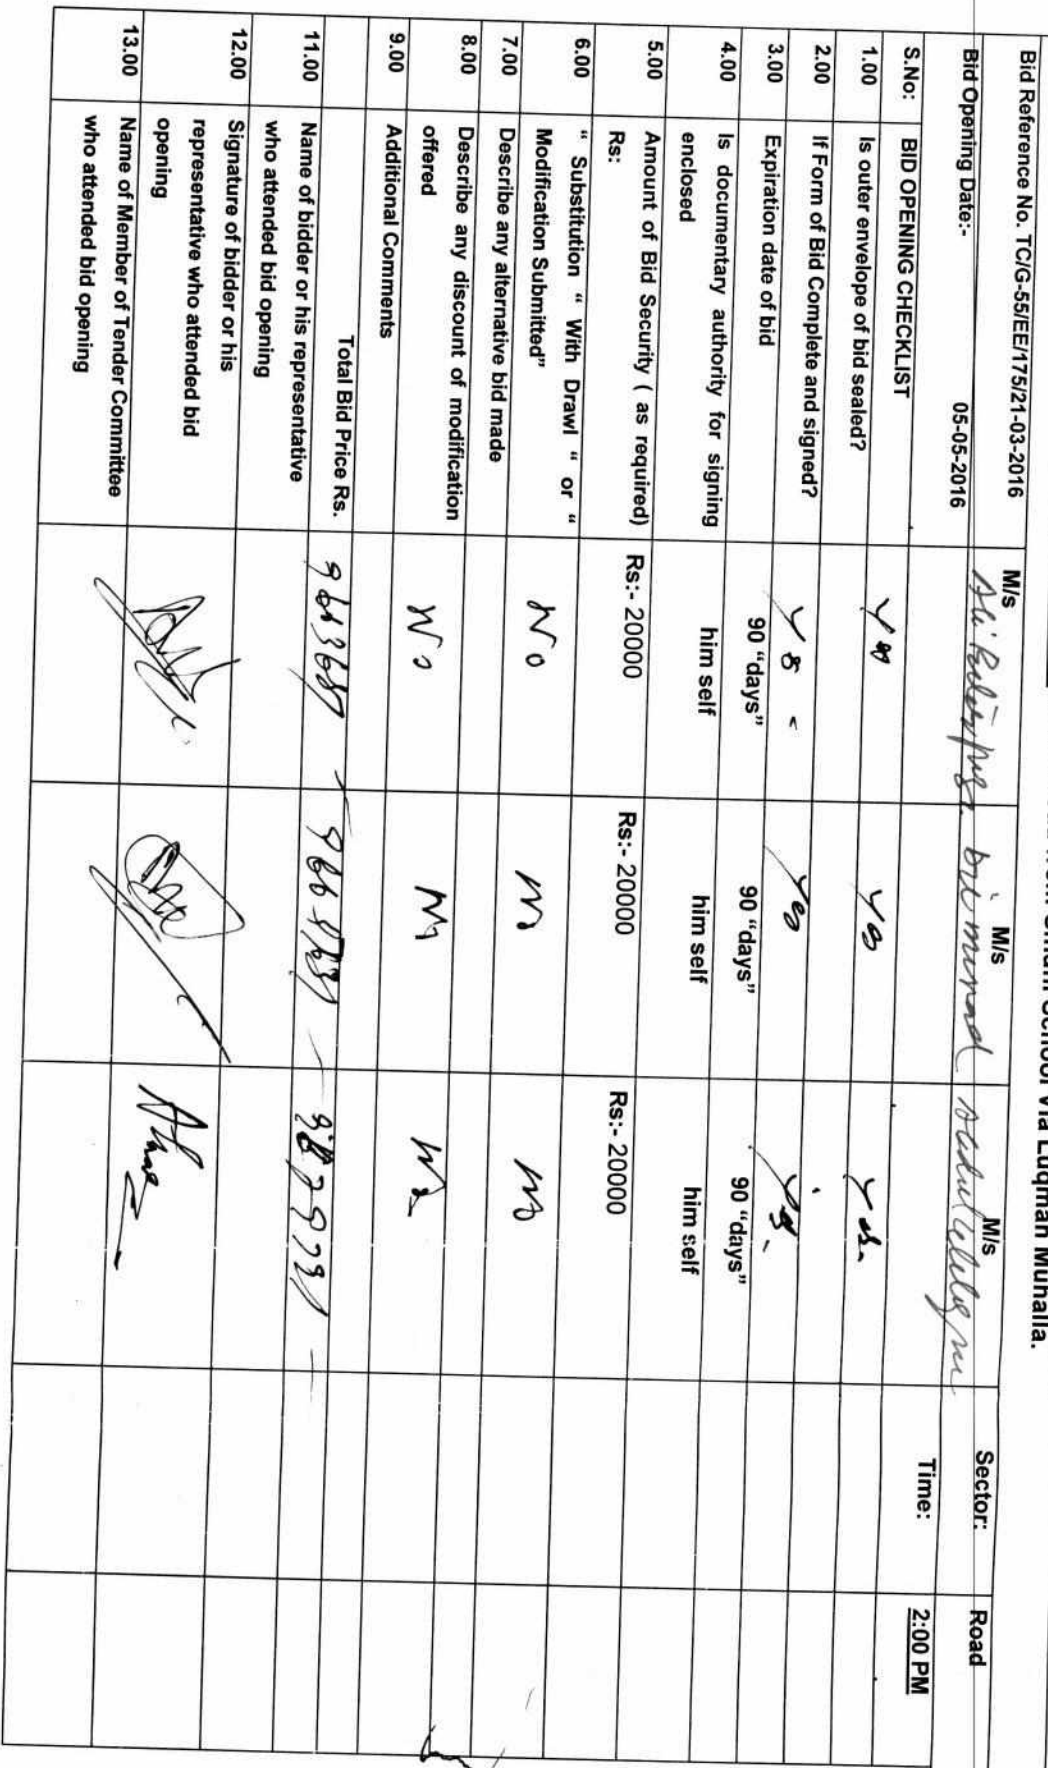 School Via Luqman Muhalla.
Bid Reference No. TC/G-55/EE/175/21-03-2016 M/s M/s M/s Sector: Road
Bid Opening Date:- 05-05-2016 Time: 2:00 PM
S.No: BID OPENING CHECKLIST
1.00 Is outer envelope of bid sealed? Yes Yes Yes
2.00 If Form of Bid Complete and signed? Yes Yes Yes
3.00 Expiration date of bid 90 “days” 90 “days” 90 “days”
4.00 Is documentary authority for signing him self him self him self
enclosed
5.00 Amount of Bid Security ( as required) Rs:- 20000 Rs:- 20000 Rs:- 20000
Rs:
6.00 “ Substitution “ With Drawl “ or “
Modification Submitted” No No No
7.00 Describe any alternative bid made
8.00 Describe any discount of modification No No No
offered
9.00 Additional Comments
Total Bid Price Rs.
11.00 Name of bidder or his representative
who attended bid opening
12.00 Signature of bidder or his
representative who attended bid
opening
13.00 Name of Member of Tender Committee
who attended bid opening